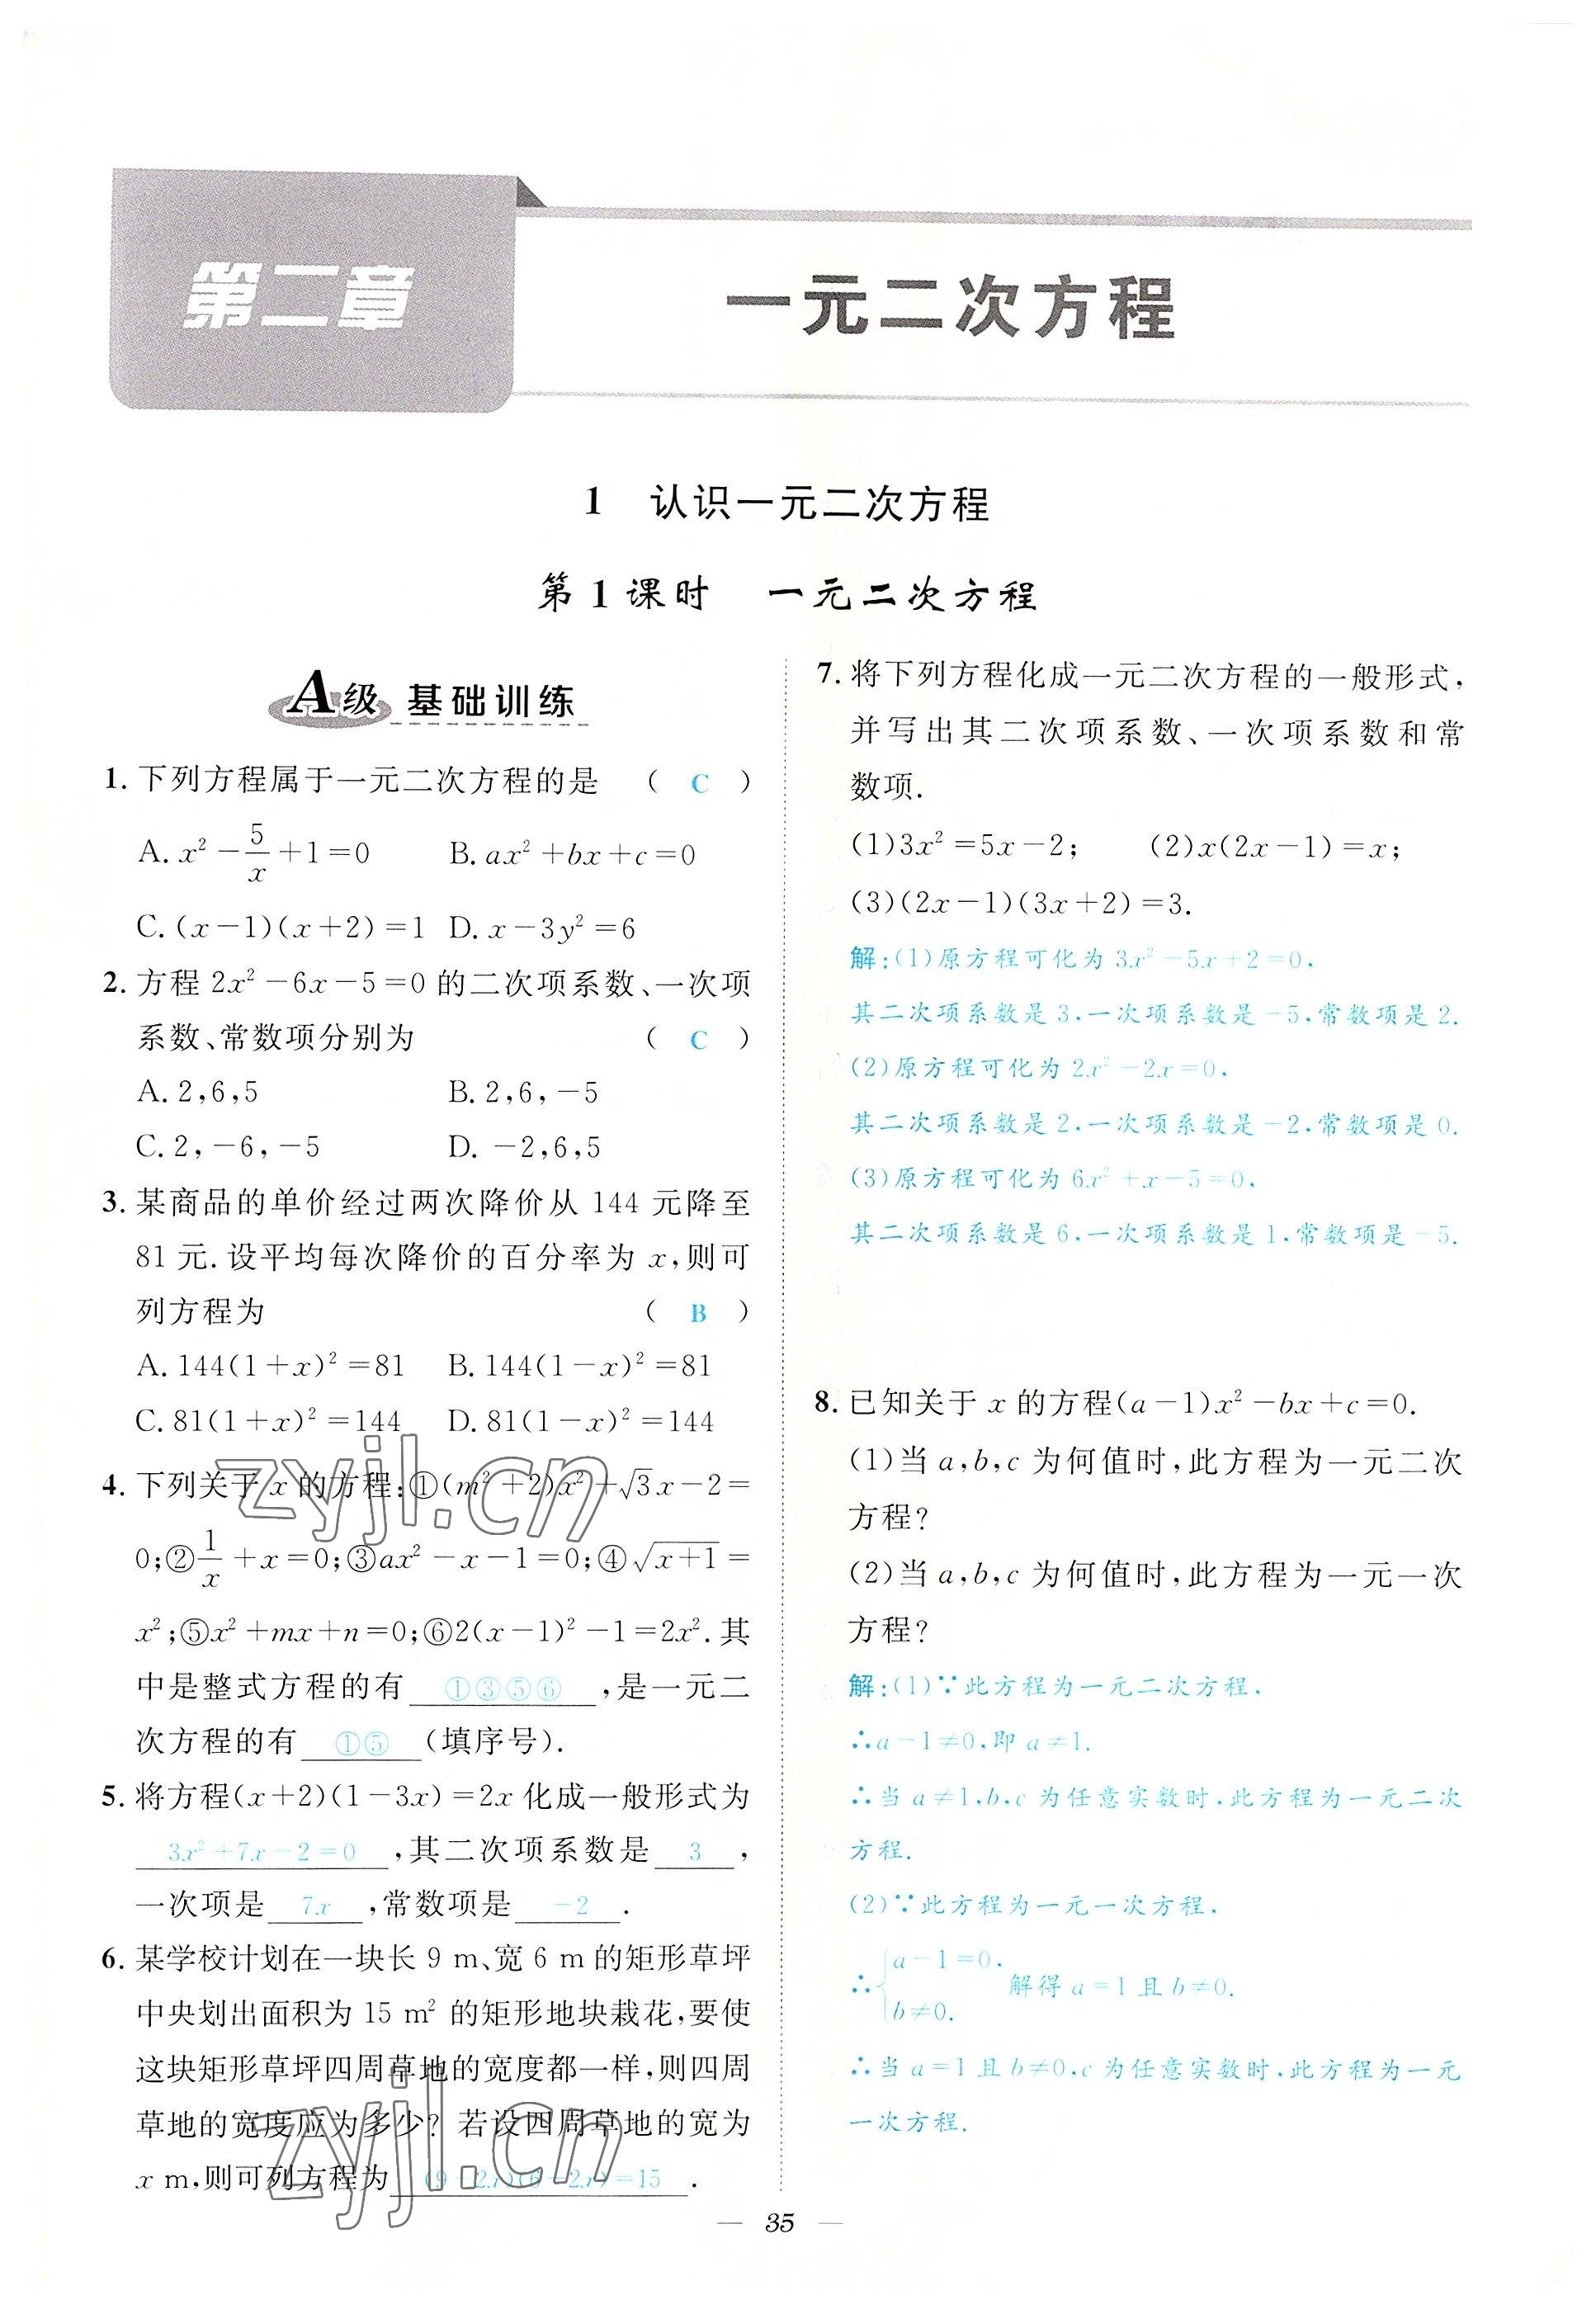 第二章
一元二次方程
1 认识一元二次方程
第1课时 一元二次方程
A级 基础训练
1. 下列方程属于一元二次方程的是 ( C )
A. x²－5/x＋1＝0 B. ax²＋bx＋c＝0
C. (x－1)(x＋2)＝1 D. x－3y²＝6
2. 方程 2x²－6x－5＝0 的二次项系数、一次项
系数、常数项分别为 ( C )
A. 2,6,5 B. 2,6,－5
C. 2,－6,－5 D. －2,6,5
3. 某商品的单价经过两次降价从 144 元降至
81 元.设平均每次降价的百分率为 x,则可
列方程为 ( B )
A. 144(1＋x)²＝81 B. 144(1－x)²＝81
C. 81(1＋x)²＝144 D. 81(1－x)²＝144
4. 下列关于 x 的方程:①(m²＋2)x²＋√3x－2＝
0;②1/x＋x＝0;③ax²－x－1＝0;④√(x＋1)＝
x²;⑤x²＋mx＋n＝0;⑥2(x－1)²－1＝2x².其
中是整式方程的有 ①③⑤⑥ ,是一元二
次方程的有 ①⑤ (填序号).
5. 将方程(x＋2)(1－3x)＝2x 化成一般形式为
3x²＋7x－2＝0 ,其二次项系数是 3 ,
一次项是 7x ,常数项是 －2 .
6. 某学校计划在一块长 9 m、宽 6 m 的矩形草坪
中央划出面积为 15 m² 的矩形地块栽花,要使
这块矩形草坪四周草地的宽度都一样,则四周
草地的宽度应为多少? 若设四周草地的宽为
x m,则可列方程为 (9－2x)(6－2x)＝15 .
7. 将下列方程化成一元二次方程的一般形式,
并写出其二次项系数、一次项系数和常
数项.
(1)3x²＝5x－2; (2)x(2x－1)＝x;
(3)(2x－1)(3x＋2)＝3.
解:(1)原方程可化为 3x²－5x＋2＝0,
其二次项系数是 3,一次项系数是－5,常数项是 2.
(2)原方程可化为 2x²－2x＝0,
其二次项系数是 2,一次项系数是－2,常数项是 0.
(3)原方程可化为 6x²＋x－5＝0,
其二次项系数是 6,一次项系数是 1,常数项是－5.
8. 已知关于 x 的方程(a－1)x²－bx＋c＝0.
(1)当 a,b,c 为何值时,此方程为一元二次
方程?
(2)当 a,b,c 为何值时,此方程为一元一次
方程?
解:(1)∵此方程为一元二次方程,
∴a－1≠0,即 a≠1.
∴当 a≠1,b,c 为任意实数时,此方程为一元二次
方程.
(2)∵此方程为一元一次方程,
∴{a－1＝0,
b≠0. 解得 a＝1 且 b≠0.
∴当 a＝1 且 b≠0,c 为任意实数时,此方程为一元
一次方程.
zyjl.cn
zyjl.cn
— 35 —